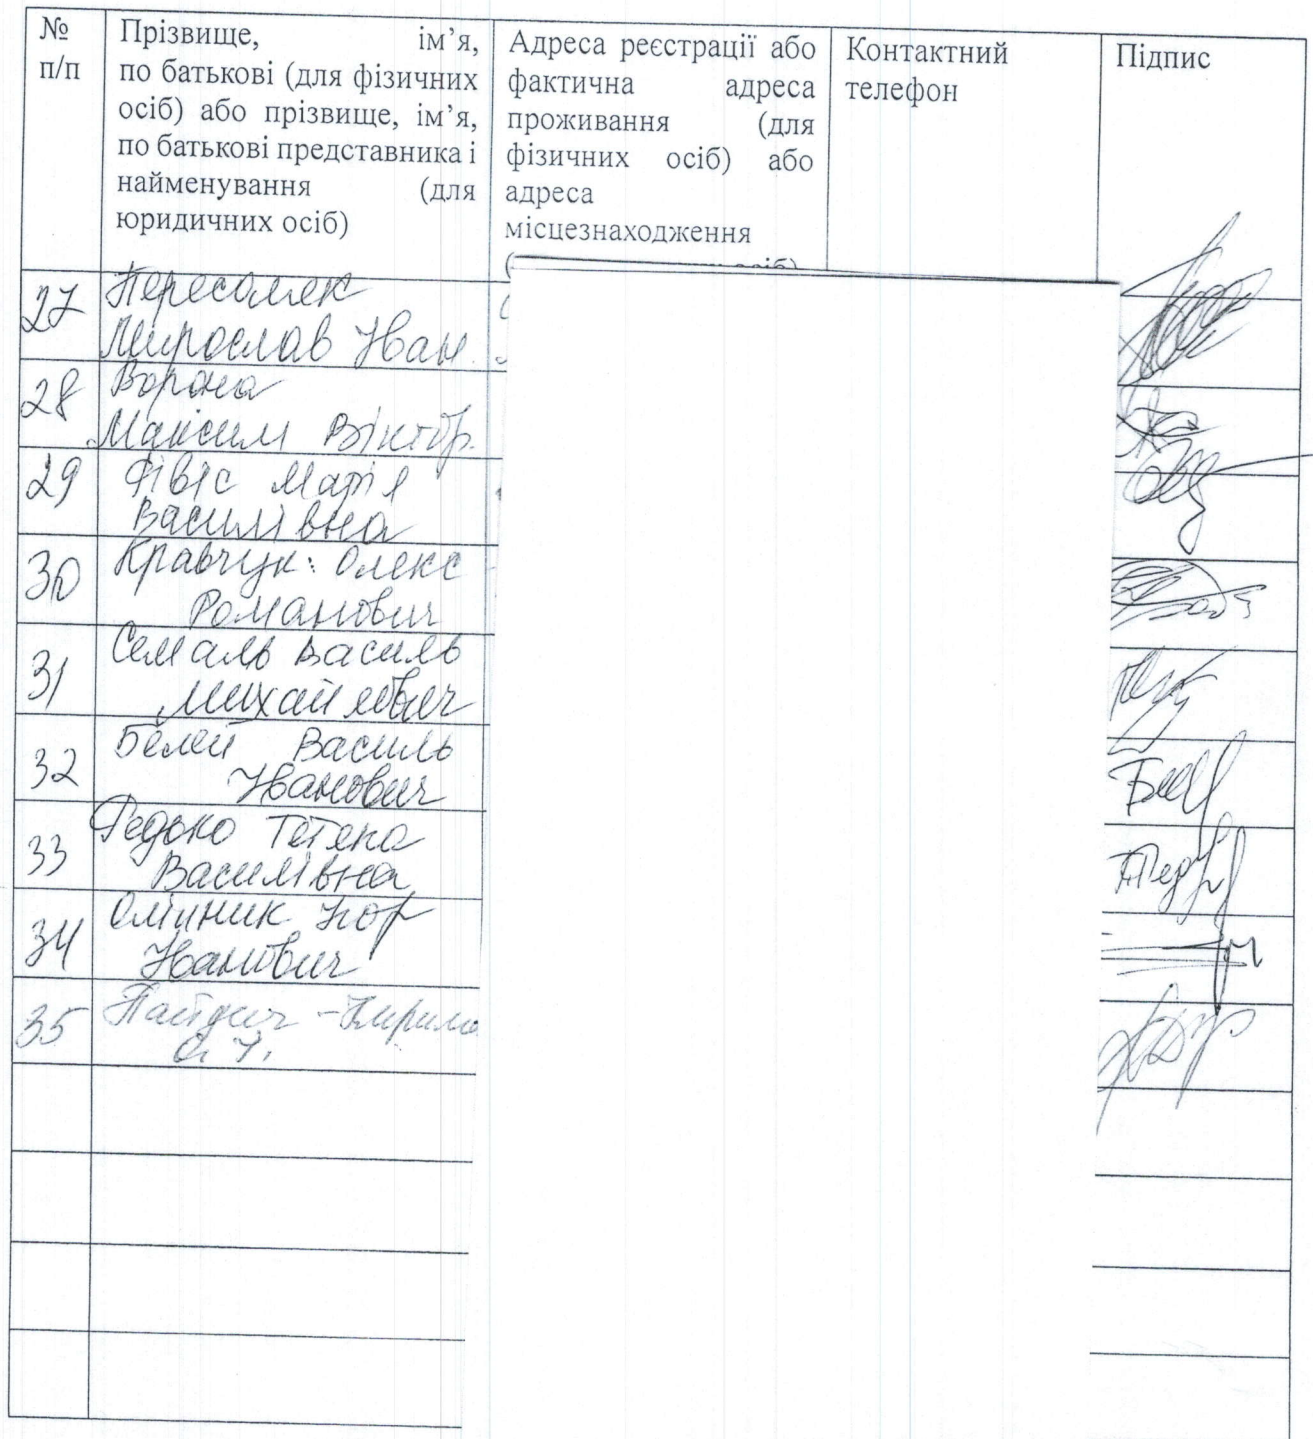 №
п/п
Прізвище, ім’я,
по батькові (для фізичних
осіб) або прізвище, ім’я,
по батькові представника і
найменування (для
юридичних осіб)
Адреса реєстрації або
фактична адреса
проживання (для
фізичних осіб) або
адреса
місцезнаходження
осіб)
Контактний
телефон
Підпис
27
Пересоляк
Мирослав Іван.
28
Ворона
Максим Віктор.
29
Фівіс Марія
Василівна
30
Кравчук Олекс
Романович
31
Семаль Василь
Михайлович
32
Белей Василь
Іванович
33
Федько Тетяна
Василівна
34
Олійник Ігор
Іванович
35